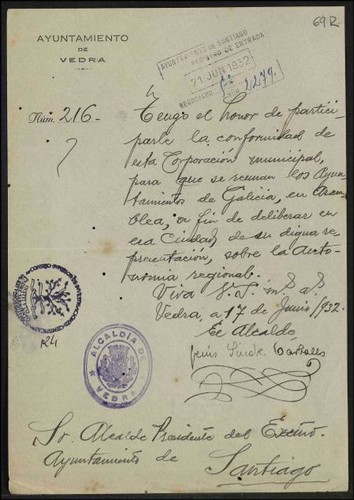 69R
AYUNTAMIENTO
DE
VEDRA
AYUNTAMIENTO DE SANTIAGO
REGISTRO DE ENTRADA
21 JUN 1932
NEGOCIADO 1º NUM 2279
Núm. 216-
Tengo el honor de partici-
parle la conformidad de
esta Corporación municipal,
para que se reunan los Ayun-
tamientos de Galicia, en Asam-
blea, a fin de deliberar en
esa Ciudad, de su digna re-
presentación, sobre la Auto-
nomia regional.
Viva V. S. m.s a.s
Vedra, a 17 de Junio 1932.
El Alcalde,
ALCALDÍA DE
VEDRA
Sr. Alcalde Presidente del Excmo.
Ayuntamiento de
Santiago